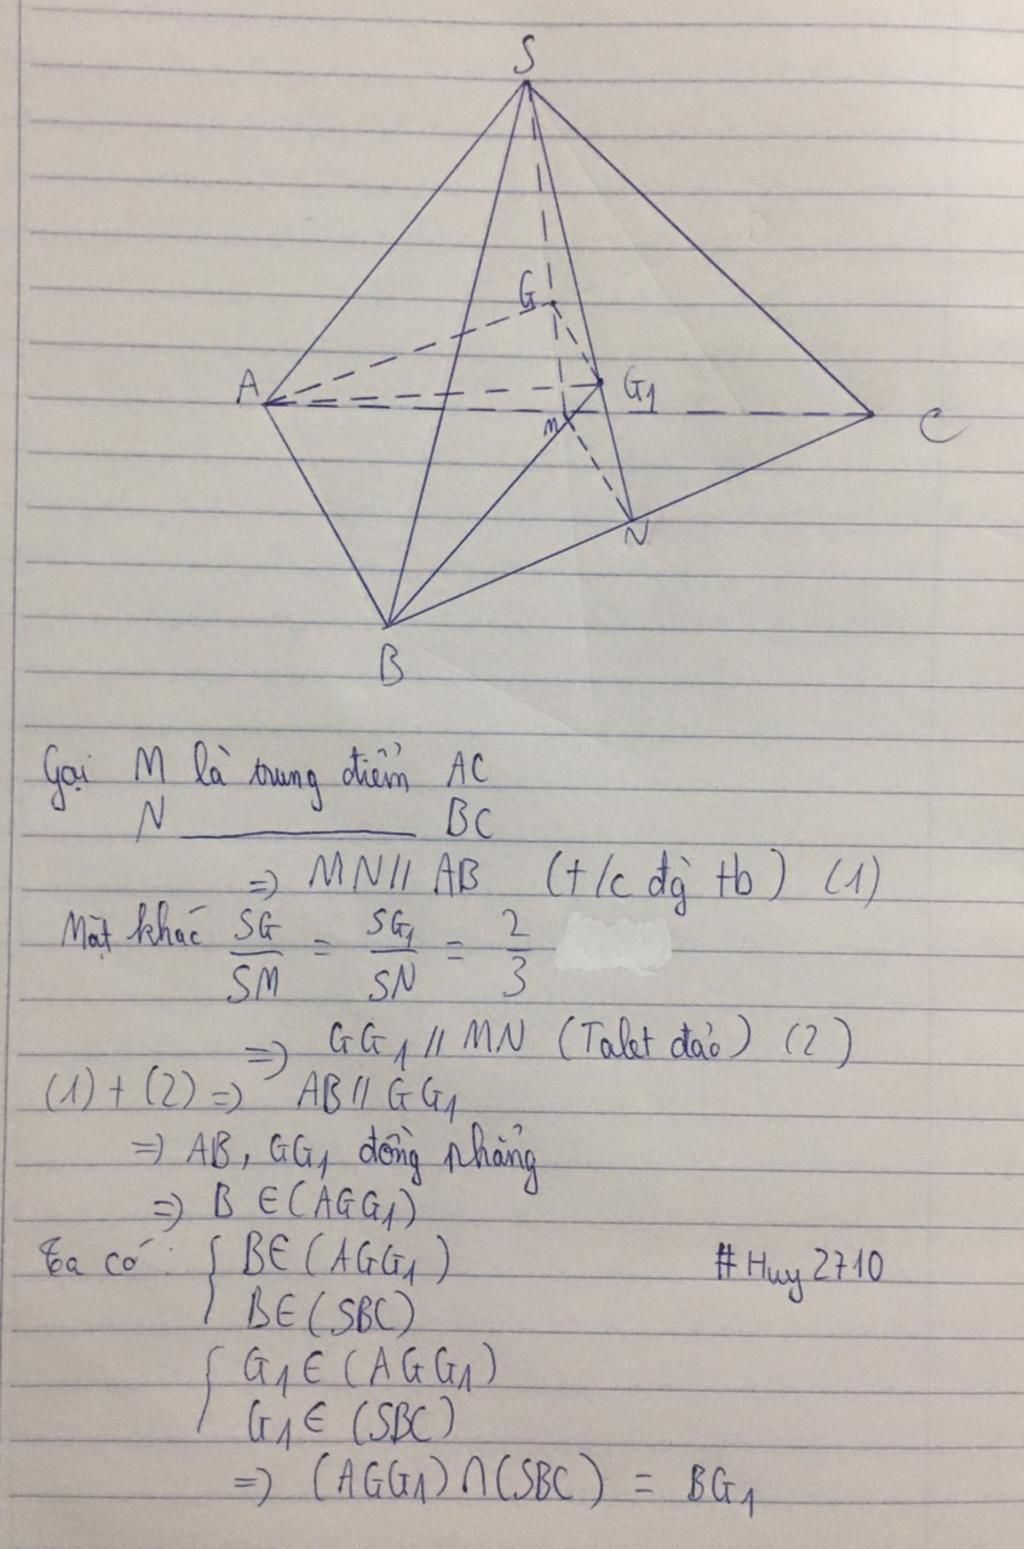 S
G
A
G1
M
C
N
B
Gọi M là trung điểm AC
N ________ BC
=> MN // AB (t/c đg tb) (1)
Mặt khác SG/SM = SG1/SN = 2/3
=> GG1 // MN (Talet đảo) (2)
(1) + (2) => AB // GG1
=> AB, GG1 đồng phẳng
=> B ∈ (AGG1)
Ta có: { B ∈ (AGG1)
B ∈ (SBC)
#Huy2710
{ G1 ∈ (AGG1)
G1 ∈ (SBC)
=> (AGG1) ∩ (SBC) = BG1